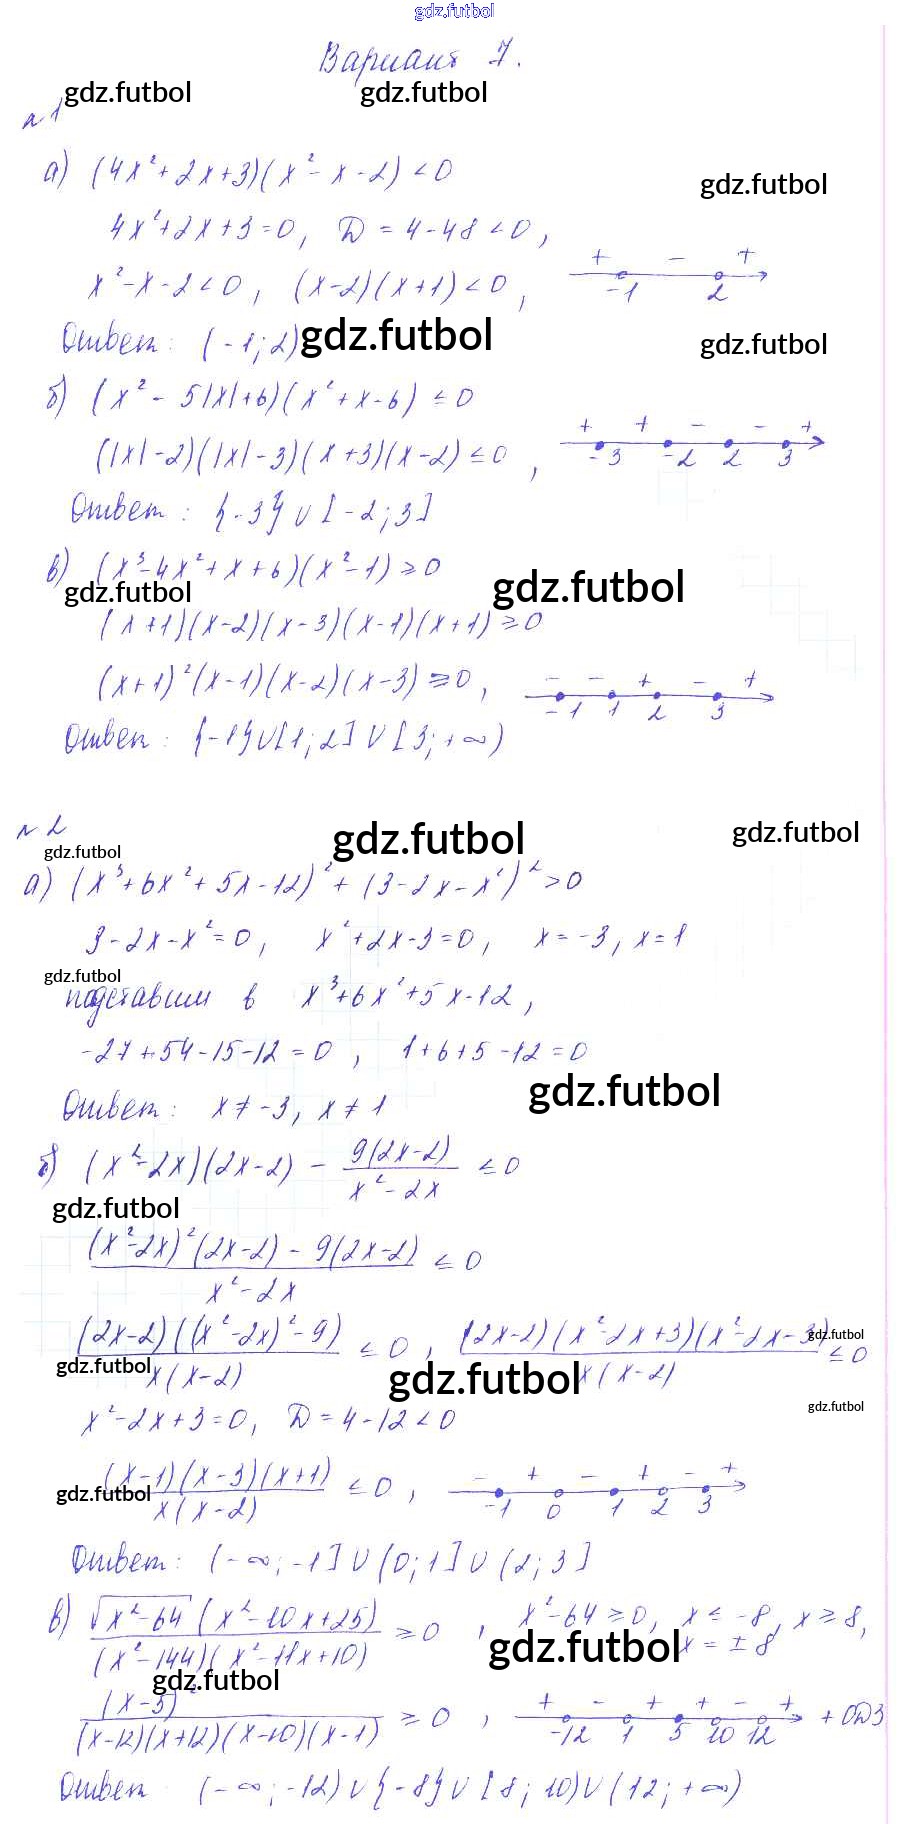 gdz.futbol
Вариант 7.
gdz.futbol gdz.futbol
№1
а) (4x²+2x+3)(x²-x-2)<0
gdz.futbol
4x²+2x+3=0, D=4-48<0,
x²-x-2<0, (x-2)(x+1)<0, + - + -1 2
Ответ: (-1;2) gdz.futbol gdz.futbol
б) (x²-5|x|+6)(x²+x-6)≤0
(|x|-2)(|x|-3)(x+3)(x-2)≤0, + + - - + -3 -2 2 3
Ответ: {-3}∪[-2;3]
в) (x³-4x²+x+6)(x²-1)≥0
gdz.futbol gdz.futbol
(x+1)(x-2)(x-3)(x-1)(x+1)≥0
(x+1)²(x-1)(x-2)(x-3)≥0, - - + - + -1 1 2 3
Ответ: {-1}∪[1;2]∪[3;+∞)
№2
gdz.futbol gdz.futbol gdz.futbol
а) (x³+6x²+5x-12)²+(3-2x-x²)²>0
3-2x-x²=0, x²+2x-3=0, x=-3, x=1
gdz.futbol
подставим в x³+6x²+5x-12,
-27+54-15-12=0, 1+6+5-12=0
gdz.futbol
Ответ: x≠-3, x≠1
б) (x²-2x)(2x-2) - 9(2x-2)/x²-2x ≤0
gdz.futbol
(x²-2x)²(2x-2)-9(2x-2)/x²-2x ≤0
(2x-2)((x²-2x)²-9)/x(x-2) ≤0, (2x-2)(x²-2x+3)(x²-2x-3)/x(x-2) ≤0
gdz.futbol gdz.futbol gdz.futbol
gdz.futbol
x²-2x+3=0, D=4-12<0
(x-1)(x-3)(x+1)/x(x-2) ≤0, - + - + - + -1 0 1 2 3
gdz.futbol
Ответ: (-∞;-1]∪(0;1]∪(2;3]
в) √x²-64 (x²-10x+25)/(x²-144)(x²-11x+10) ≥0, x²-64≥0, x≤-8, x≥8,
gdz.futbol x=±8
gdz.futbol
(x-5)²/(x-12)(x+12)(x-10)(x-1) ≥0, + - + + - + -12 1 5 10 12 +ОДЗ
Ответ: (-∞;-12)∪{-8}∪[8;10)∪(12;+∞)